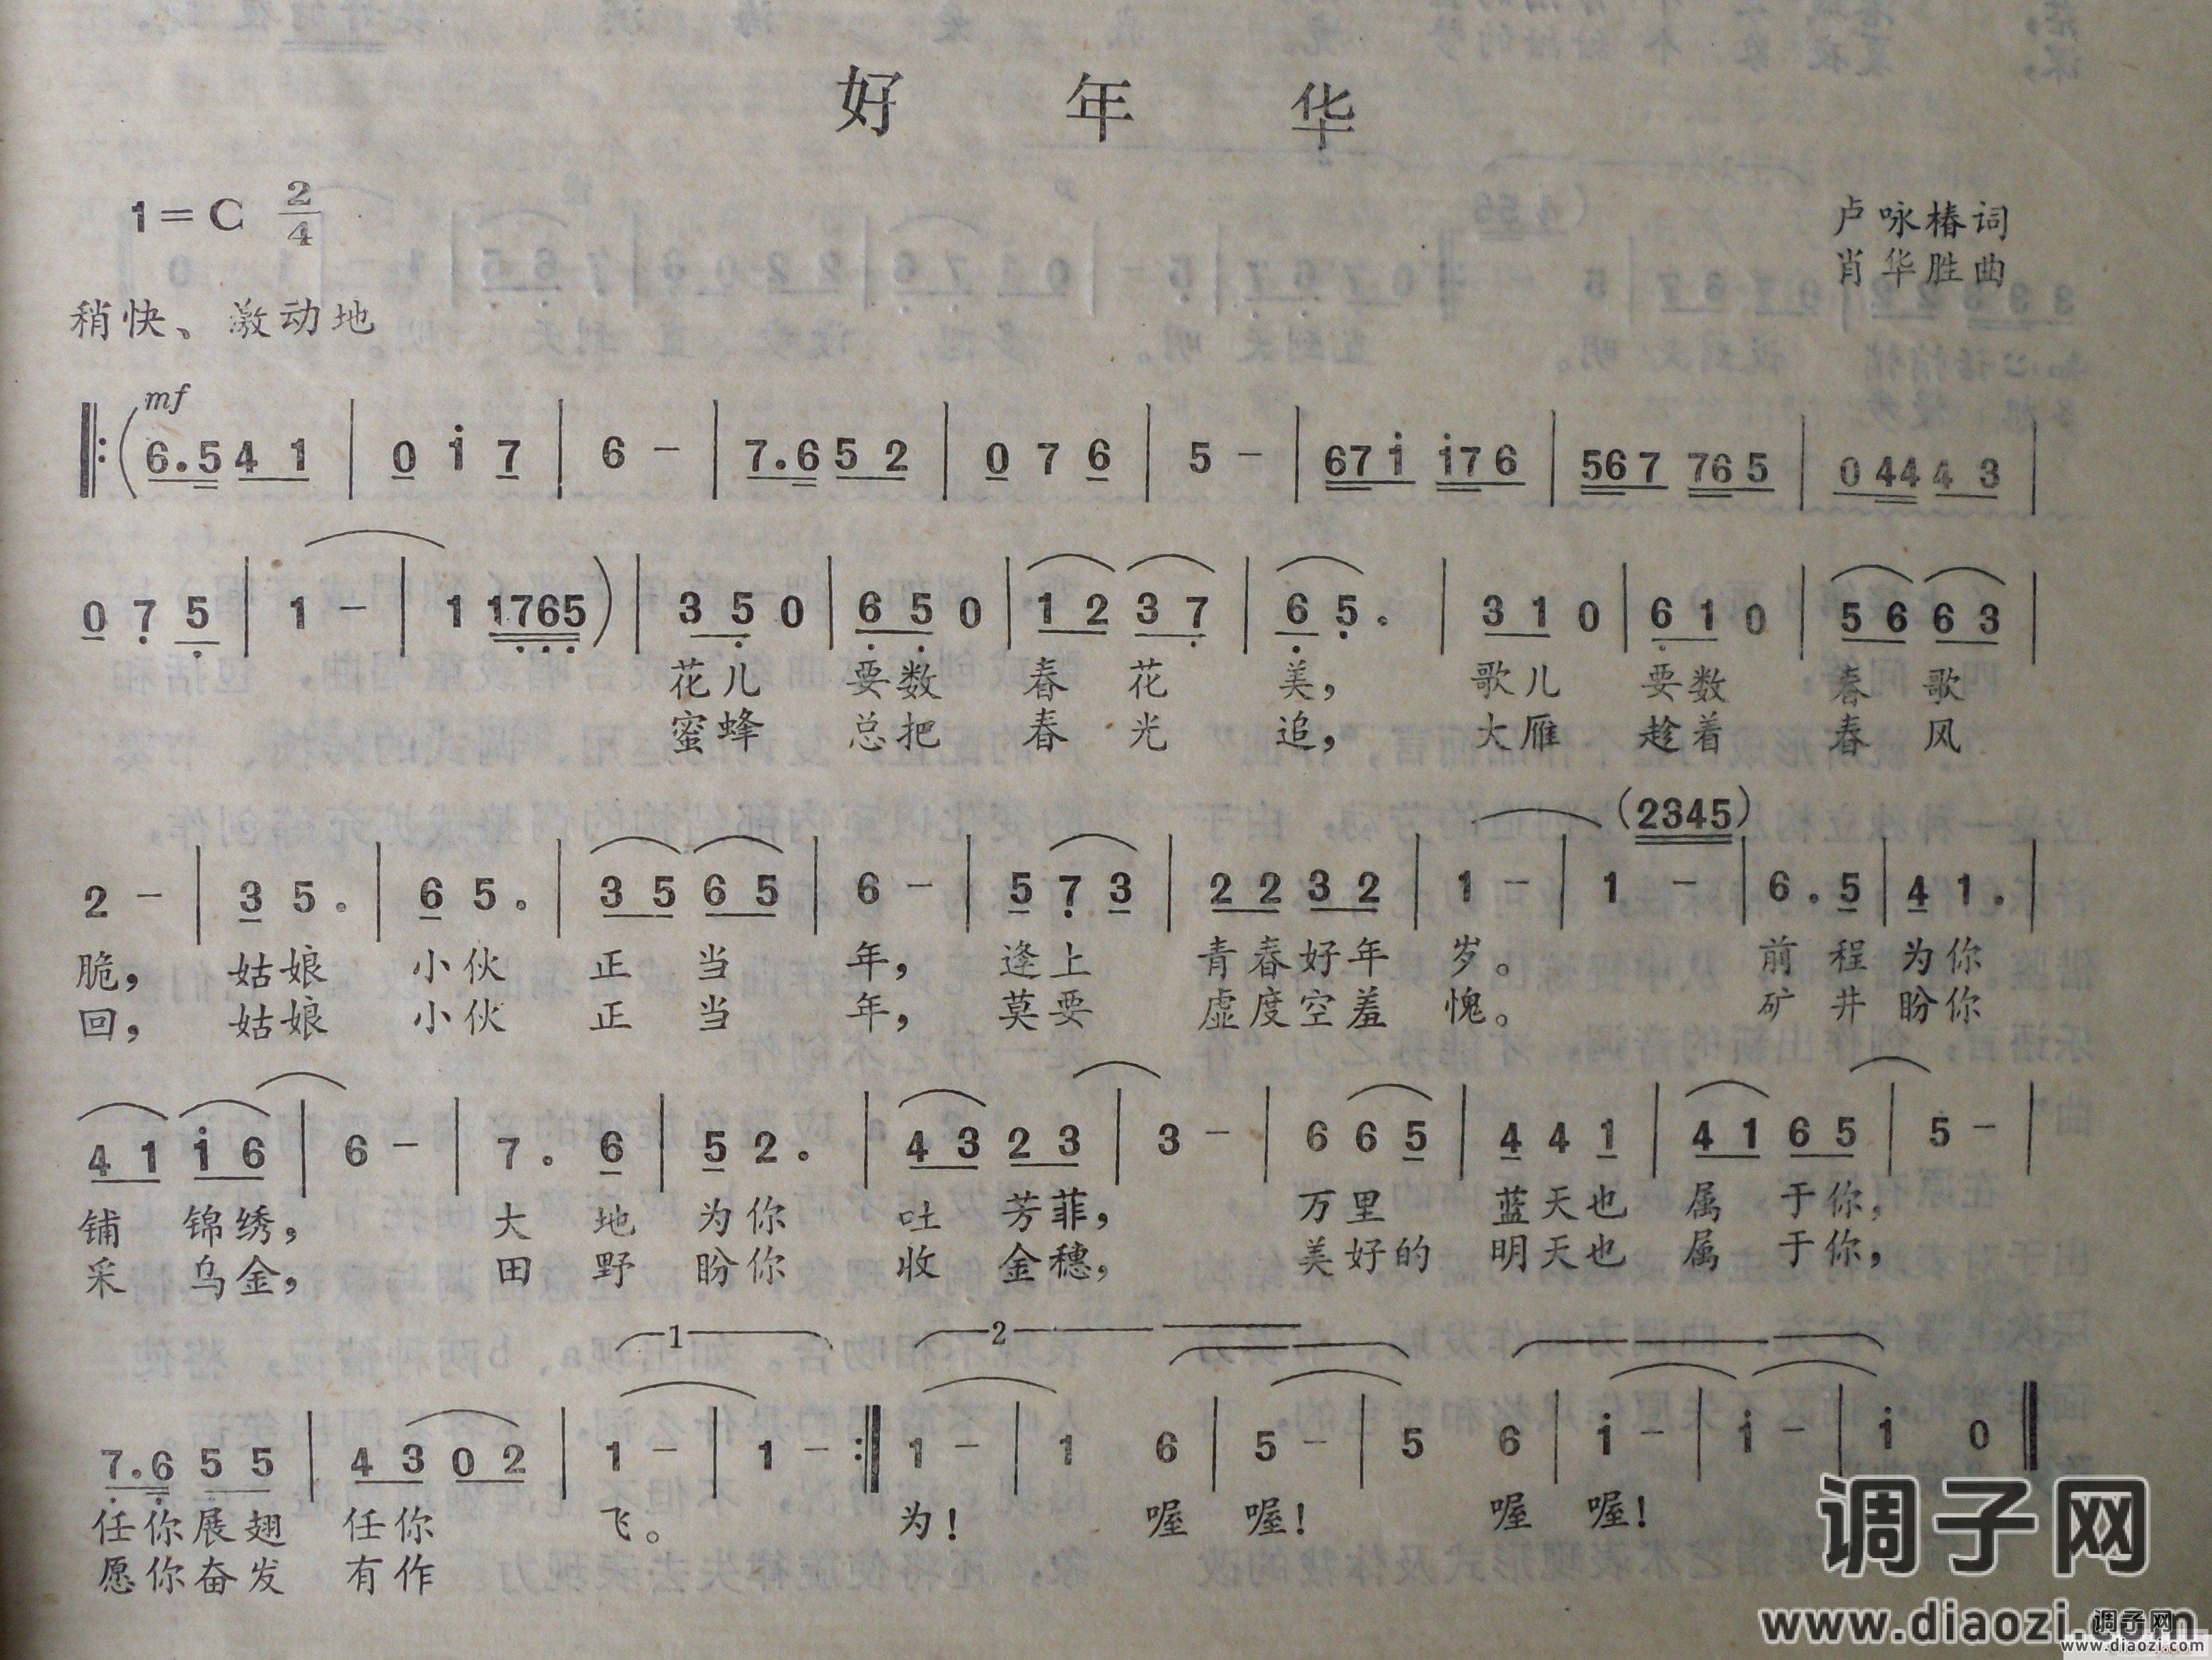 好年华
1=C 2/4
卢咏椿词
肖华胜曲
稍快、激动地
mf
(6.5 4 1 | 0 i 7 | 6 - | 7.6 5 2 | 0 7 6 | 5 - | 67i i76 | 567 765 | 0 44 4 3 |
0 7 5 | 1 - | 1 1765) | 3 5 0 | 6 5 0 | 1 2 3 7 | 6 5. | 3 1 0 | 6 1 0 | 5 6 6 3 |
花儿 要数 春 花 美, 歌儿 要数 春 歌
蜜蜂 总把 春 光 追, 大雁 趁着 春 风
(2345)
2 - | 3 5. | 6 5. | 3 5 6 5 | 6 - | 5 7 3 | 2 2 3 2 | 1 - | 1 - | 6. 5 | 4 1. |
脆, 姑娘 小伙 正 当 年, 逢上 青春好年 岁。 前 程 为你
回, 姑娘 小伙 正 当 年, 莫要 虚度空羞 愧。 矿 井 盼你
4 1 i 6 | 6 - | 7. 6 | 5 2. | 4 3 2 3 | 3 - | 6 6 5 | 4 4 1 | 4 1 6 5 | 5 - |
铺 锦绣, 大 地 为你 吐 芳菲, 万里 蓝天也 属 于你,
采 乌金, 田 野 盼你 收 金穗, 美好的 明天也 属 于你,
1 2
7.6 5 5 | 4 3 0 2 | 1 - | 1 - :| 1 - | 1 6 | 5 - | 5 6 | i - | i - | i 0
任你展翅 任你 飞。 为! 喔 喔! 喔 喔!
愿你奋发 有作
调子网
www.diaozi.com
调子网
www.diaozi.com